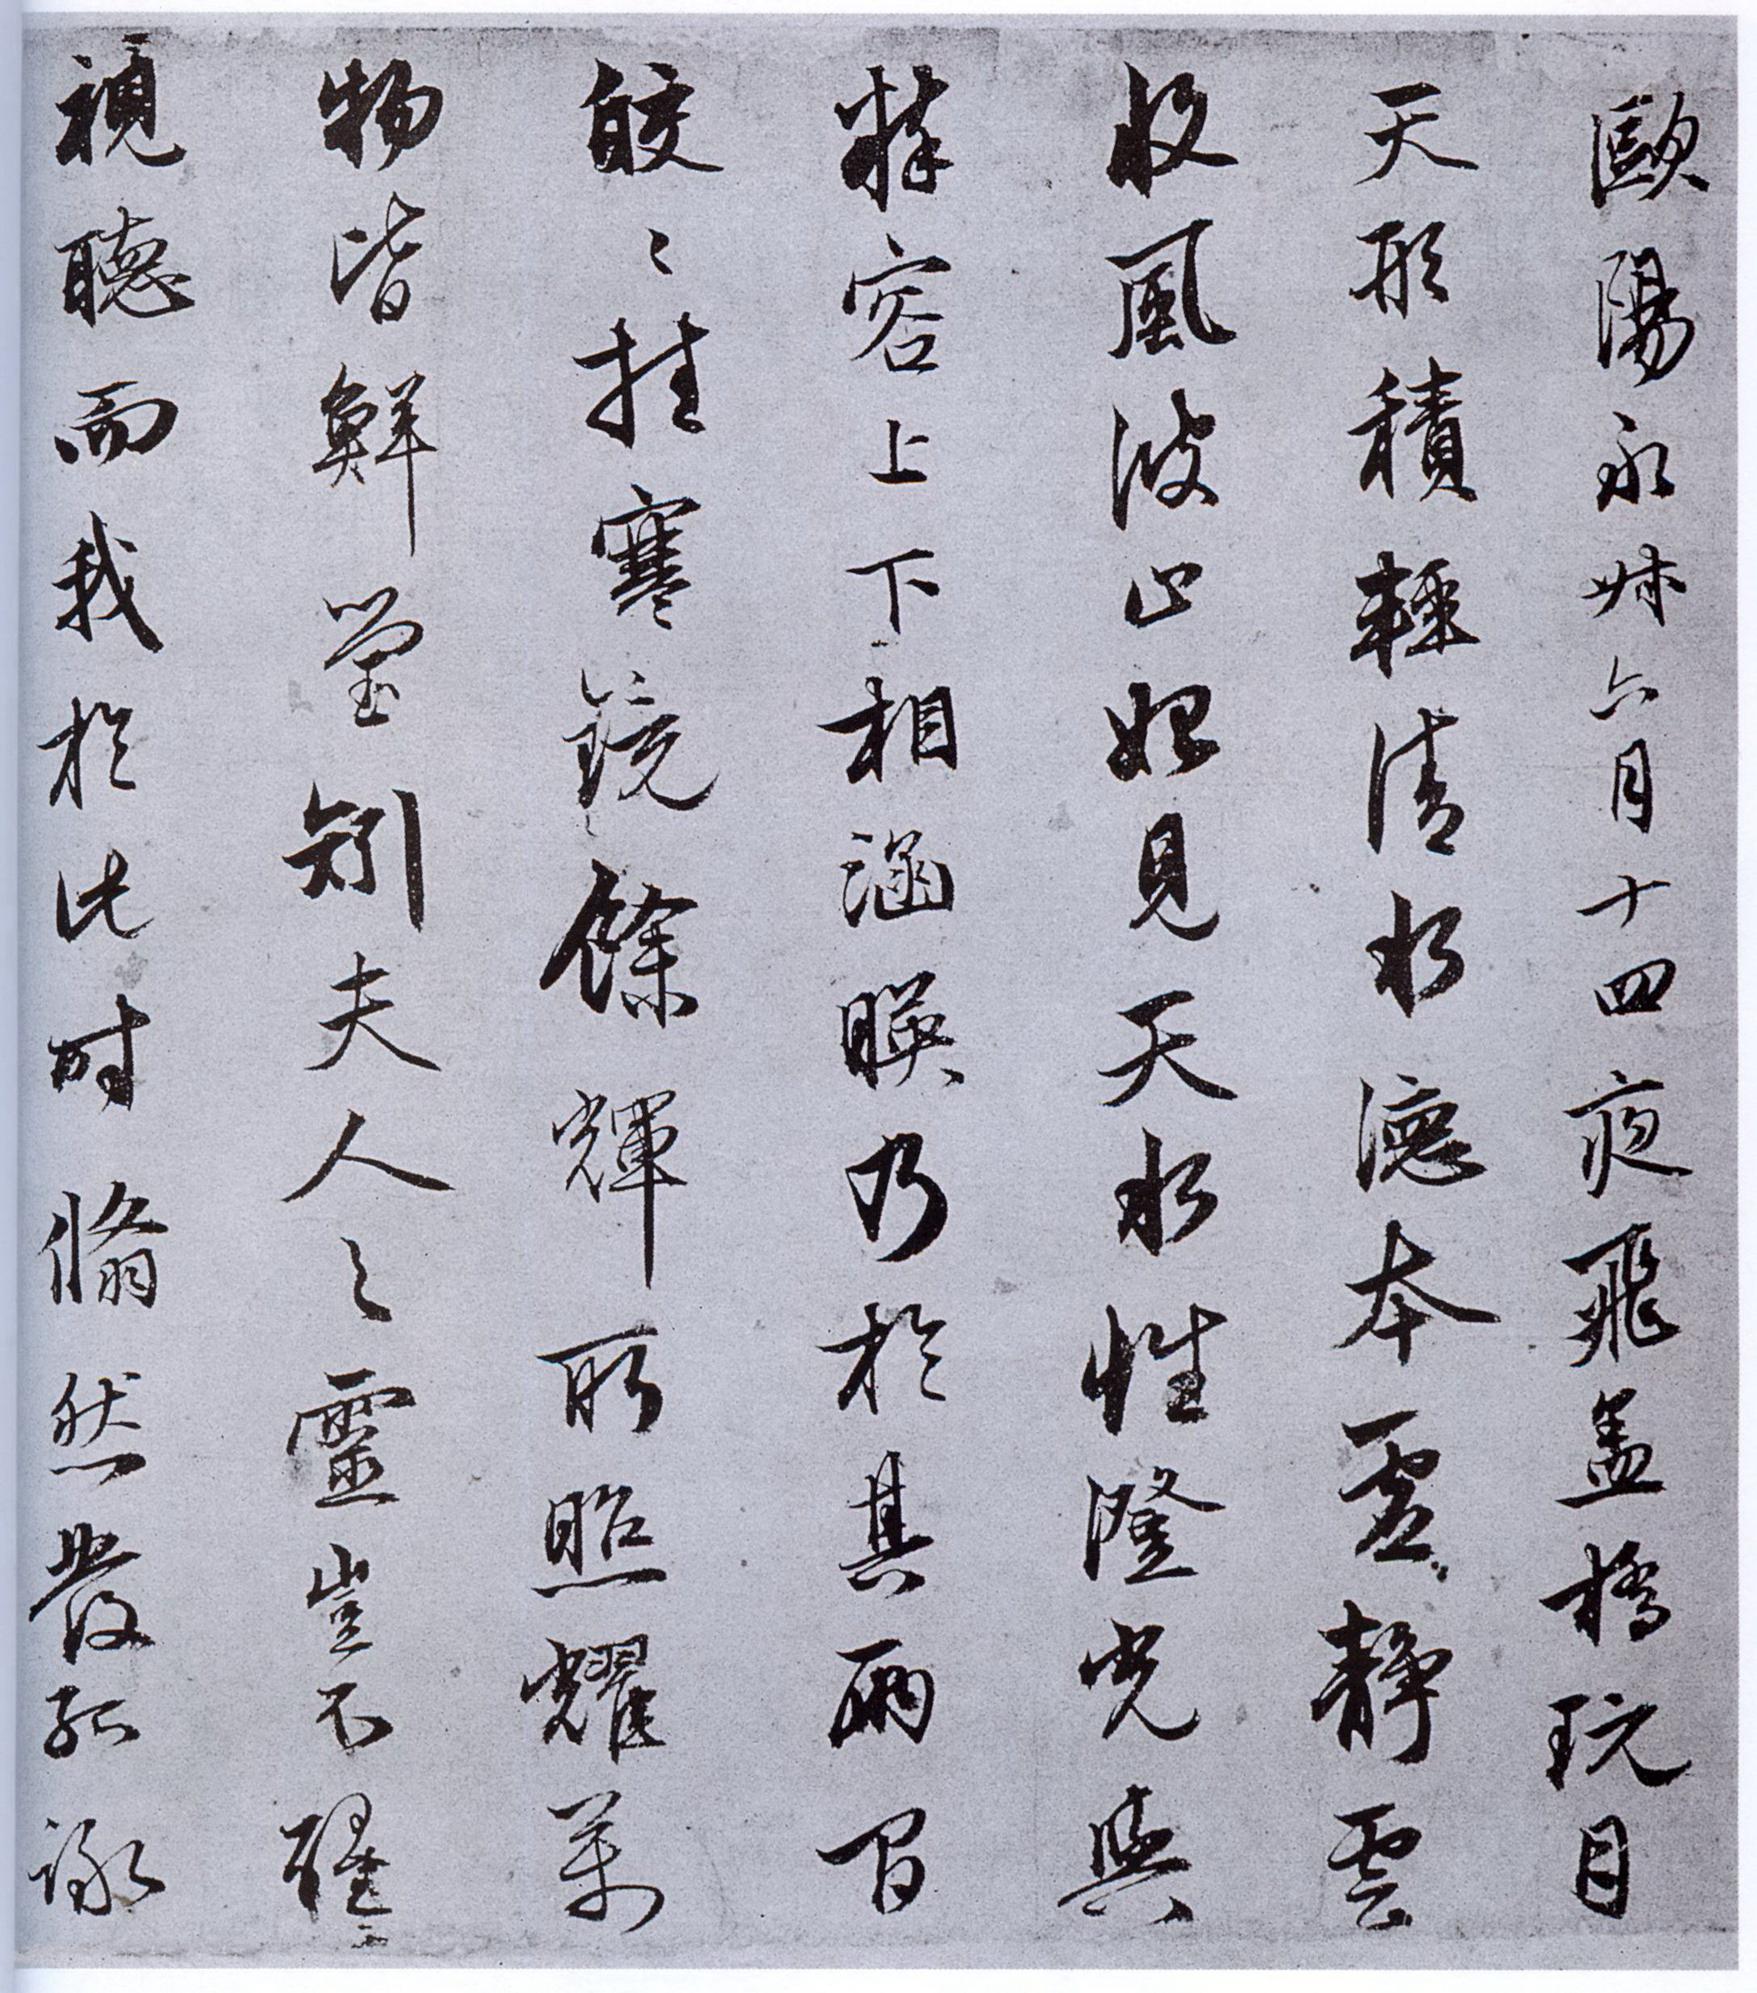 歐陽永叔六月十四夜飛蓋橋玩月
天形積輕清水德本虛靜雲
收風波止始見天水性澄光與
粹容上下相涵映乃於其兩間
皎々挂寒鏡餘輝所照耀萬
物皆鮮瑩矧夫人之靈豈不醒
視聽而我於此時翛然發孤詠